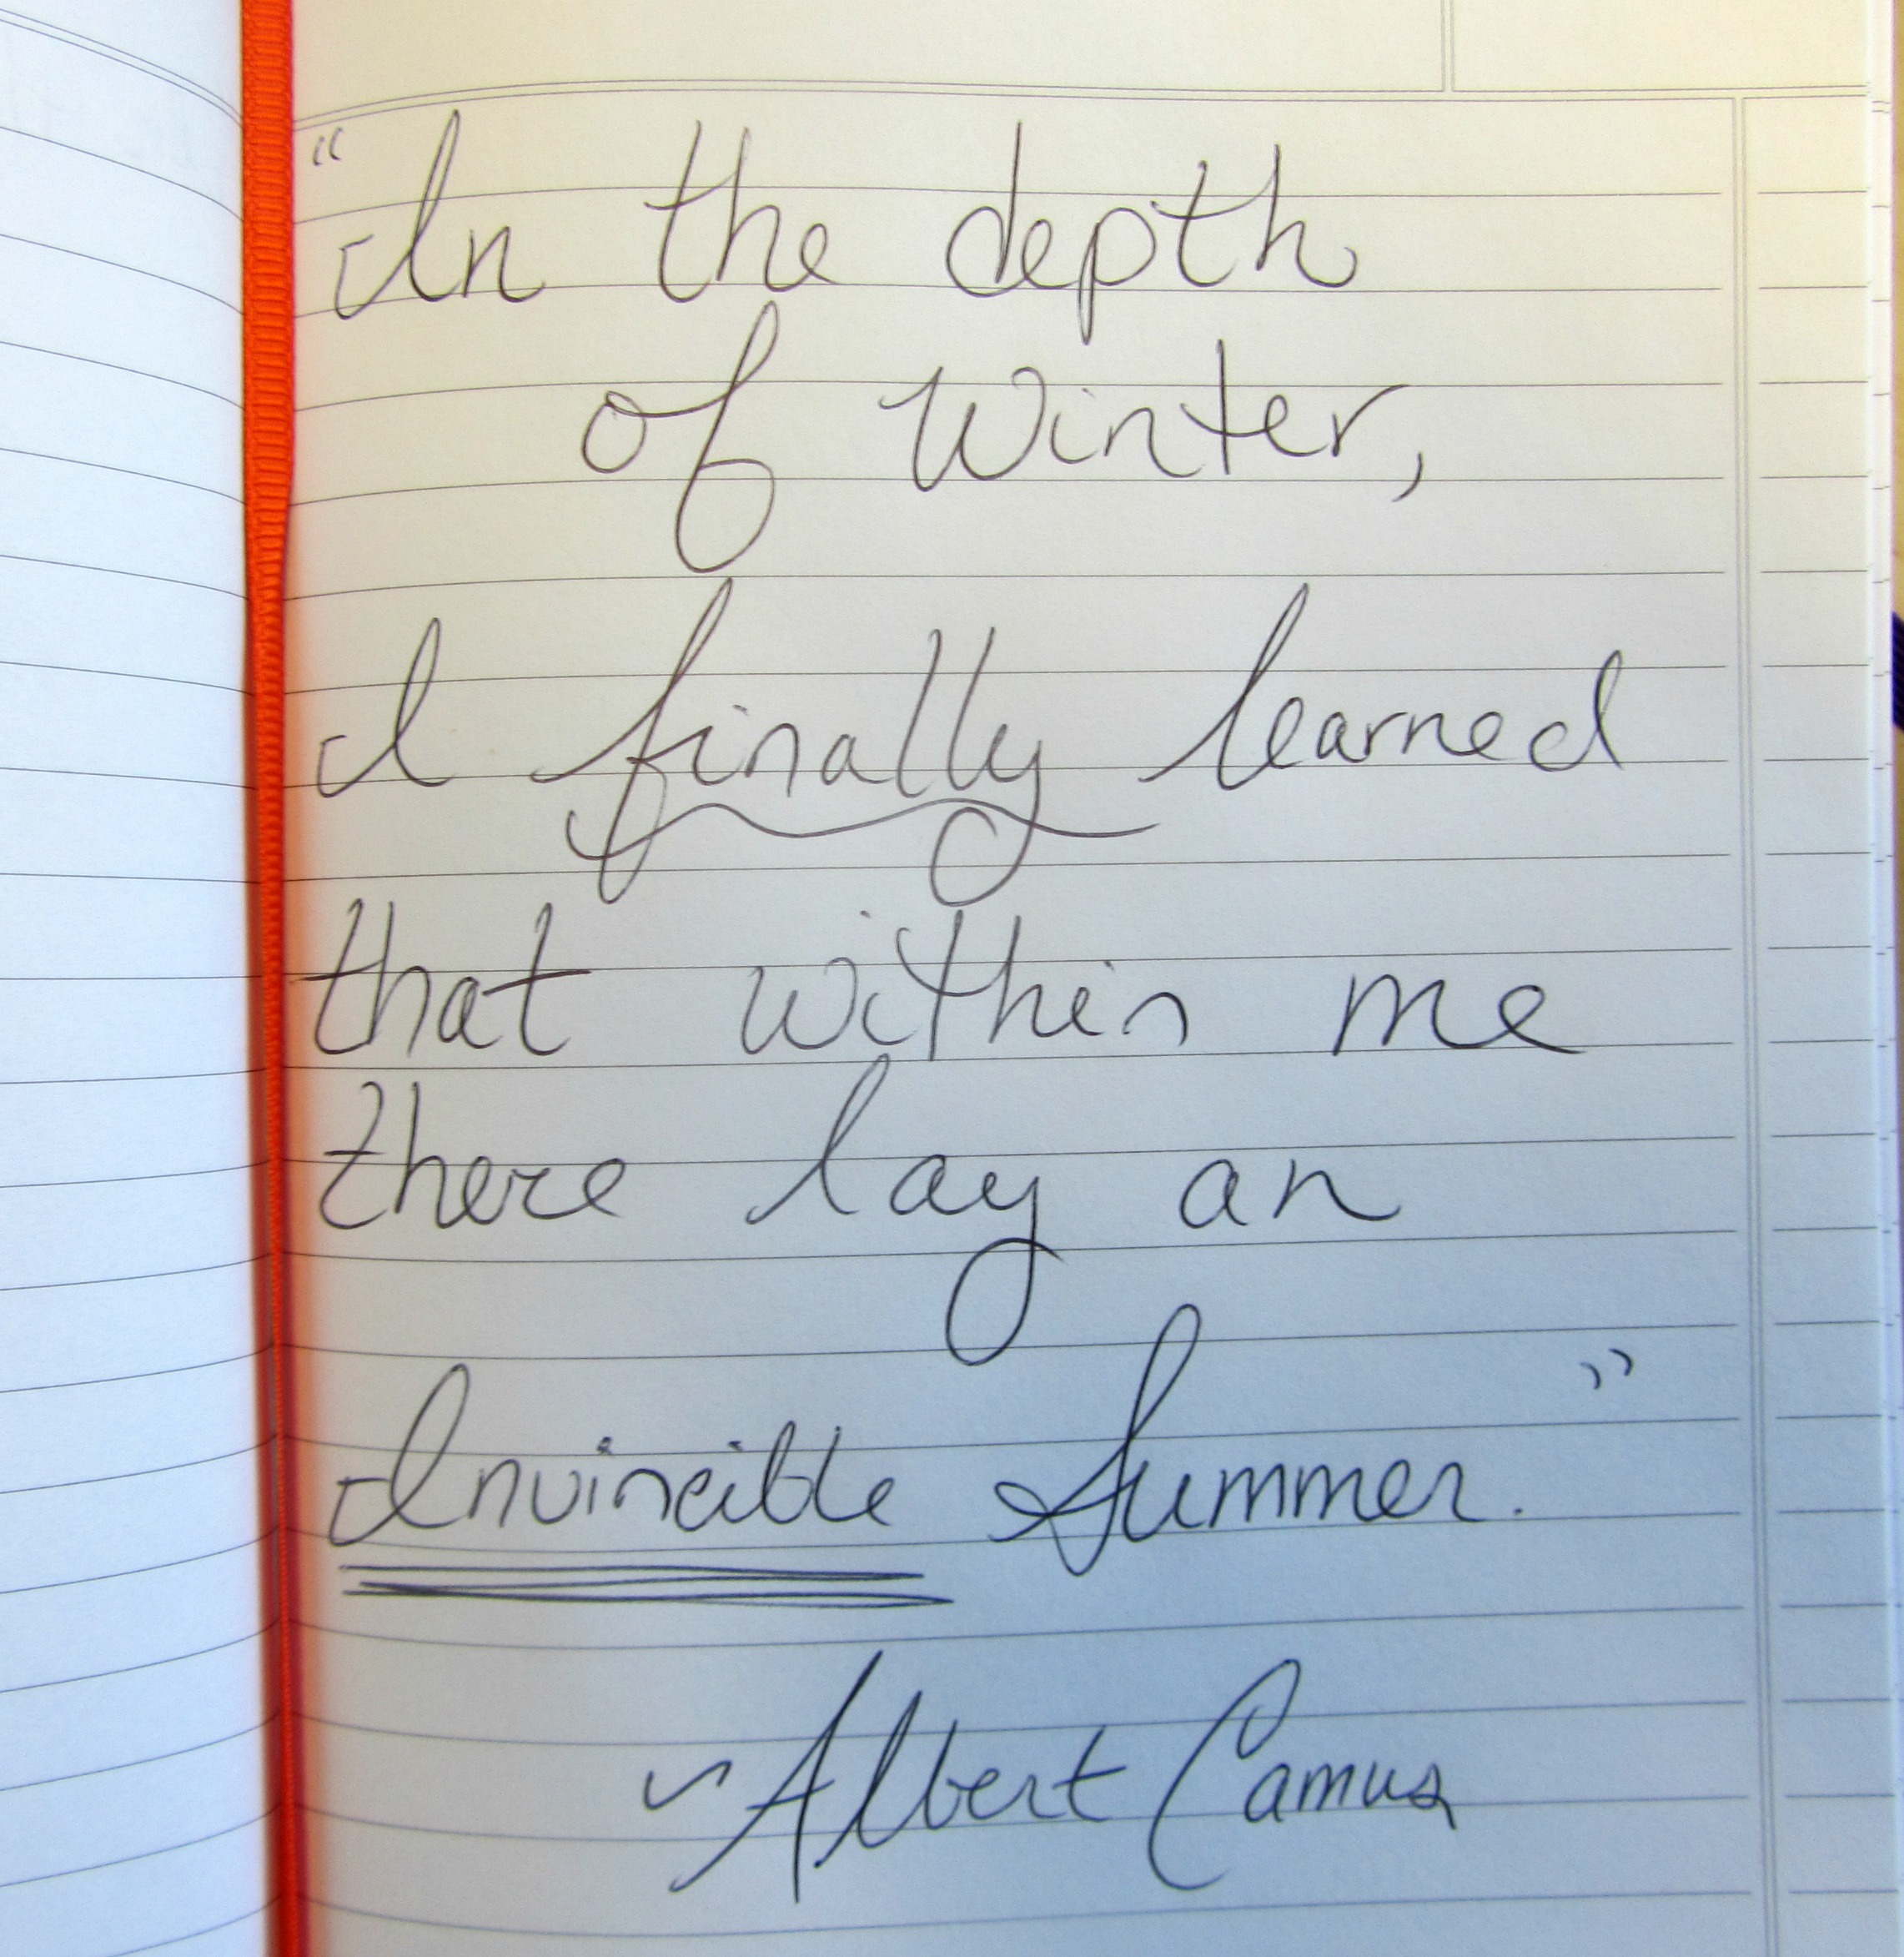 “In the depth
of Winter,
I finally learned
that within me
there lay an
Invincible Summer.”
~Albert Camus